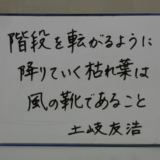 階段を転がるように
降りていく枯れ葉は
風の靴であること
土岐友浩